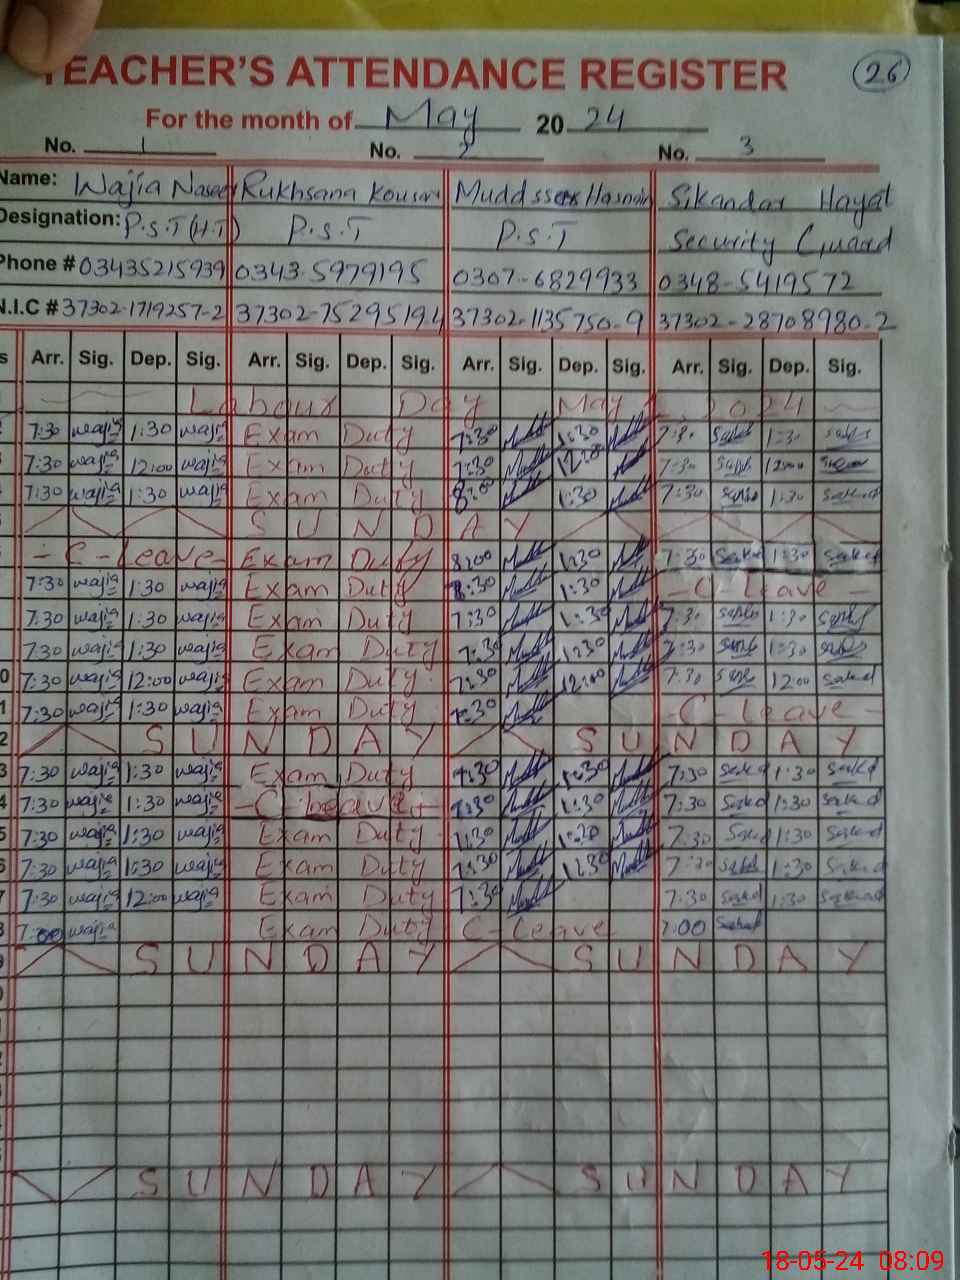 TEACHER'S ATTENDANCE REGISTER 26
For the month of May 20 24
No. 1 No. 2 No. 3
Name: Wajia Naseer Rukhsana Kousar Muddsser Hasnain Sikandar Hayat
Designation: P.S.T (H.T) P.S.T P.S.T Security Guard
Phone # 03435215939 0343-5979195 0307-6829933 0348-5419572
N.I.C # 37302-1719257-2 37302-7529519-4 37302-1135750-9 37302-2870898-2
s Arr. Sig. Dep. Sig. Arr. Sig. Dep. Sig. Arr. Sig. Dep. Sig. Arr. Sig. Dep. Sig.
Labour Day May 1, 2024
7:30 wajia 1:30 wajia Exam Duty 7:30 1:30 7:30 1:30
7:30 wajia 12:00 wajia Exam Duty 7:30 12:00 7:30 12:00
7:30 wajia 1:30 wajia Exam Duty 8:00 1:30 7:30 1:30
SUNDAY
- C - Leave - Exam Duty 8:00 1:30 7:30 1:30
7:30 wajia 1:30 wajia Exam Duty 8:30 1:30 - C - Leave -
7:30 wajia 1:30 wajia Exam Duty 7:30 1:30 7:30 1:30
7:30 wajia 1:30 wajia Exam Duty 7:30 1:30 7:30 1:30
0 7:30 wajia 12:00 wajia Exam Duty 7:30 12:00 7:30 12:00
1 7:30 wajia 1:30 wajia Exam Duty 7:30 - C - Leave -
2 SUNDAY SUNDAY
3 7:30 wajia 1:30 wajia Exam Duty 7:30 1:30 7:30 1:30
4 7:30 wajia 1:30 wajia - C - Leave - 7:30 1:30 7:30 1:30
5 7:30 wajia 1:30 wajia Exam Duty 7:30 1:30 7:30 1:30
6 7:30 wajia 1:30 wajia Exam Duty 7:30 1:30 7:30 1:30
7 7:30 wajia 12:00 wajia Exam Duty 7:30 7:30 1:30
8 7:00 wajia Exam Duty C - Leave 7:00
9 SUNDAY SUNDAY
SUNDAY SUNDAY
18-05-24 08:09